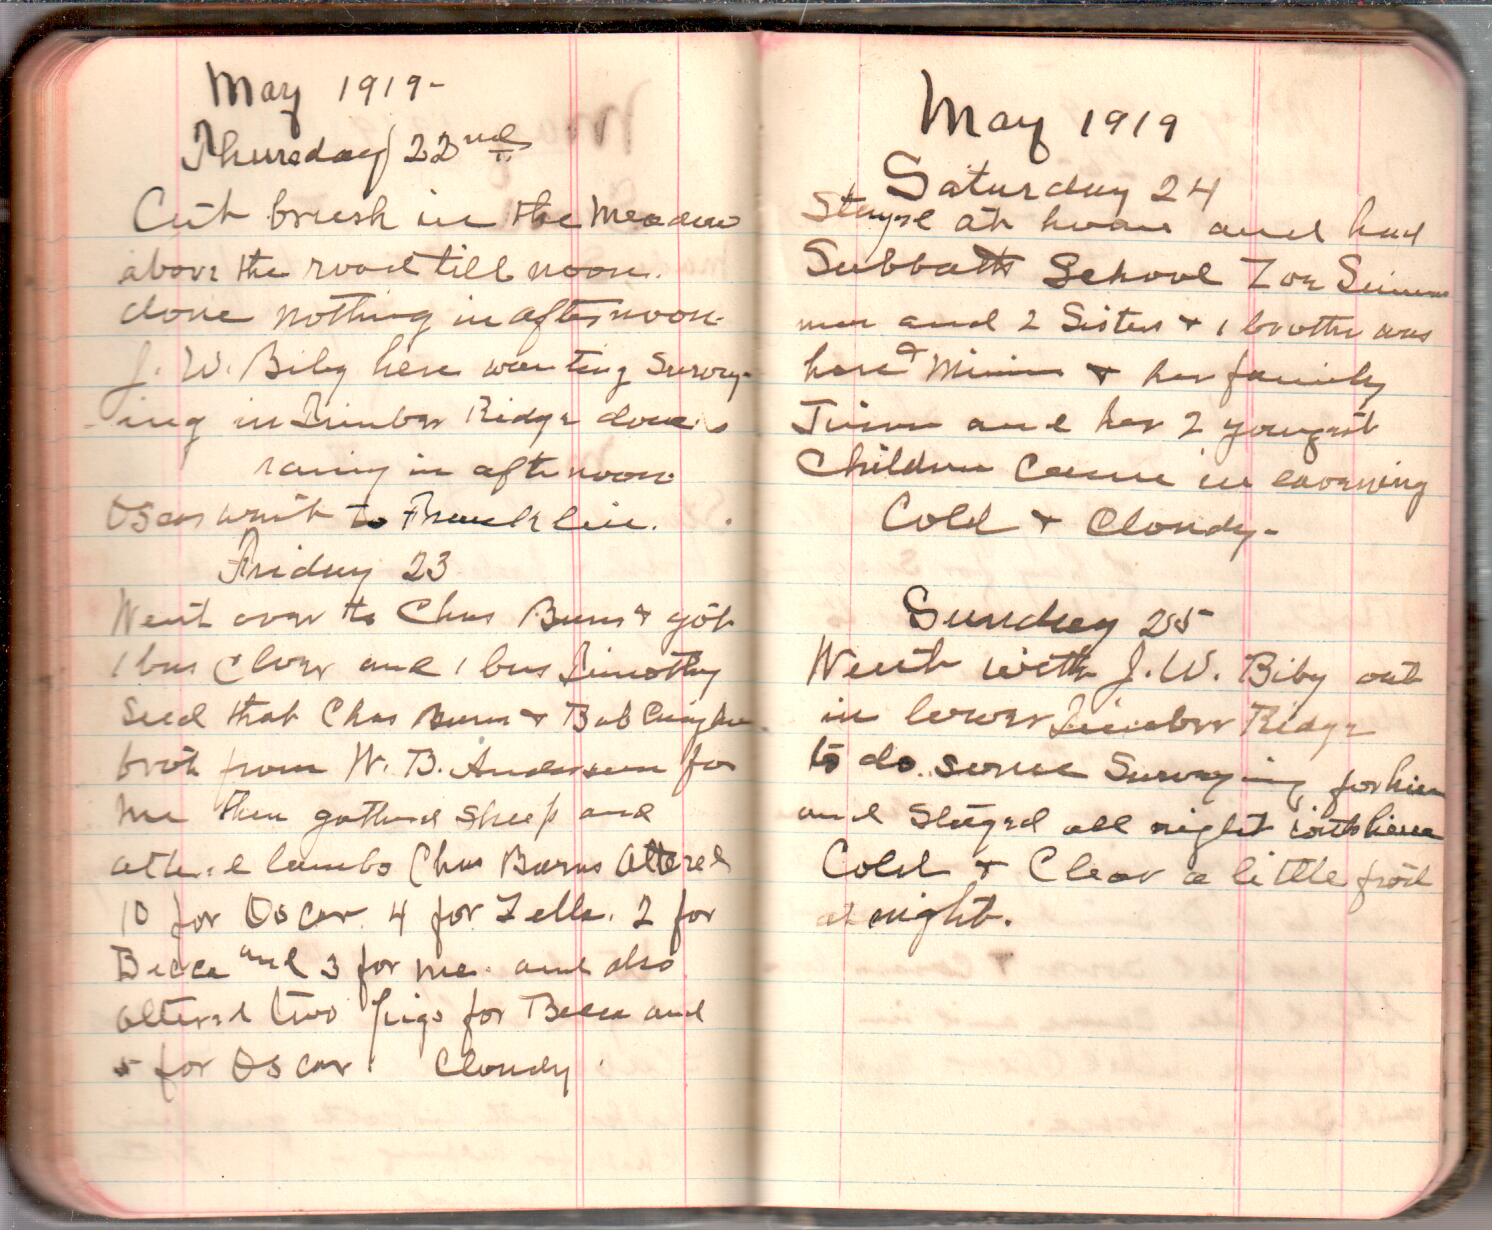 May 1919-
Thursday 22nd
Cut brush in the Meadow
above the road till noon.
done nothing in afternoon.
J. W. Biby here wanting Survey-
ing in Timber Ridge done.
rainy in afternoon
Oscar went to Franklin.
Friday 23
Went over to Chas Burns & got
1 bus Clover and 1 bus Timothy
Seed that Chas Burns & Bob
brot from W. B. Anderson for
me then gathered sheep and
altered lambs Chas Burns altered
10 for Oscar 4 for Zella. 2 for
Becca and 3 for me. and also
altered two pigs for Becca and
5 for Oscar. Cloudy.
May 1919
Saturday 24
Stayed at home and had
Sabbath School Zoe
and 2 Sisters & 1 brother was
here & Minnie & her family
and her 2 youngest
Children Came in evening
Cold & Cloudy-
Sunday 25
Went with J. W. Biby out
in lower Timber Ridge
to do some Surveying for him
and stayed all night with him
Cold & Clear a little frost
at night.